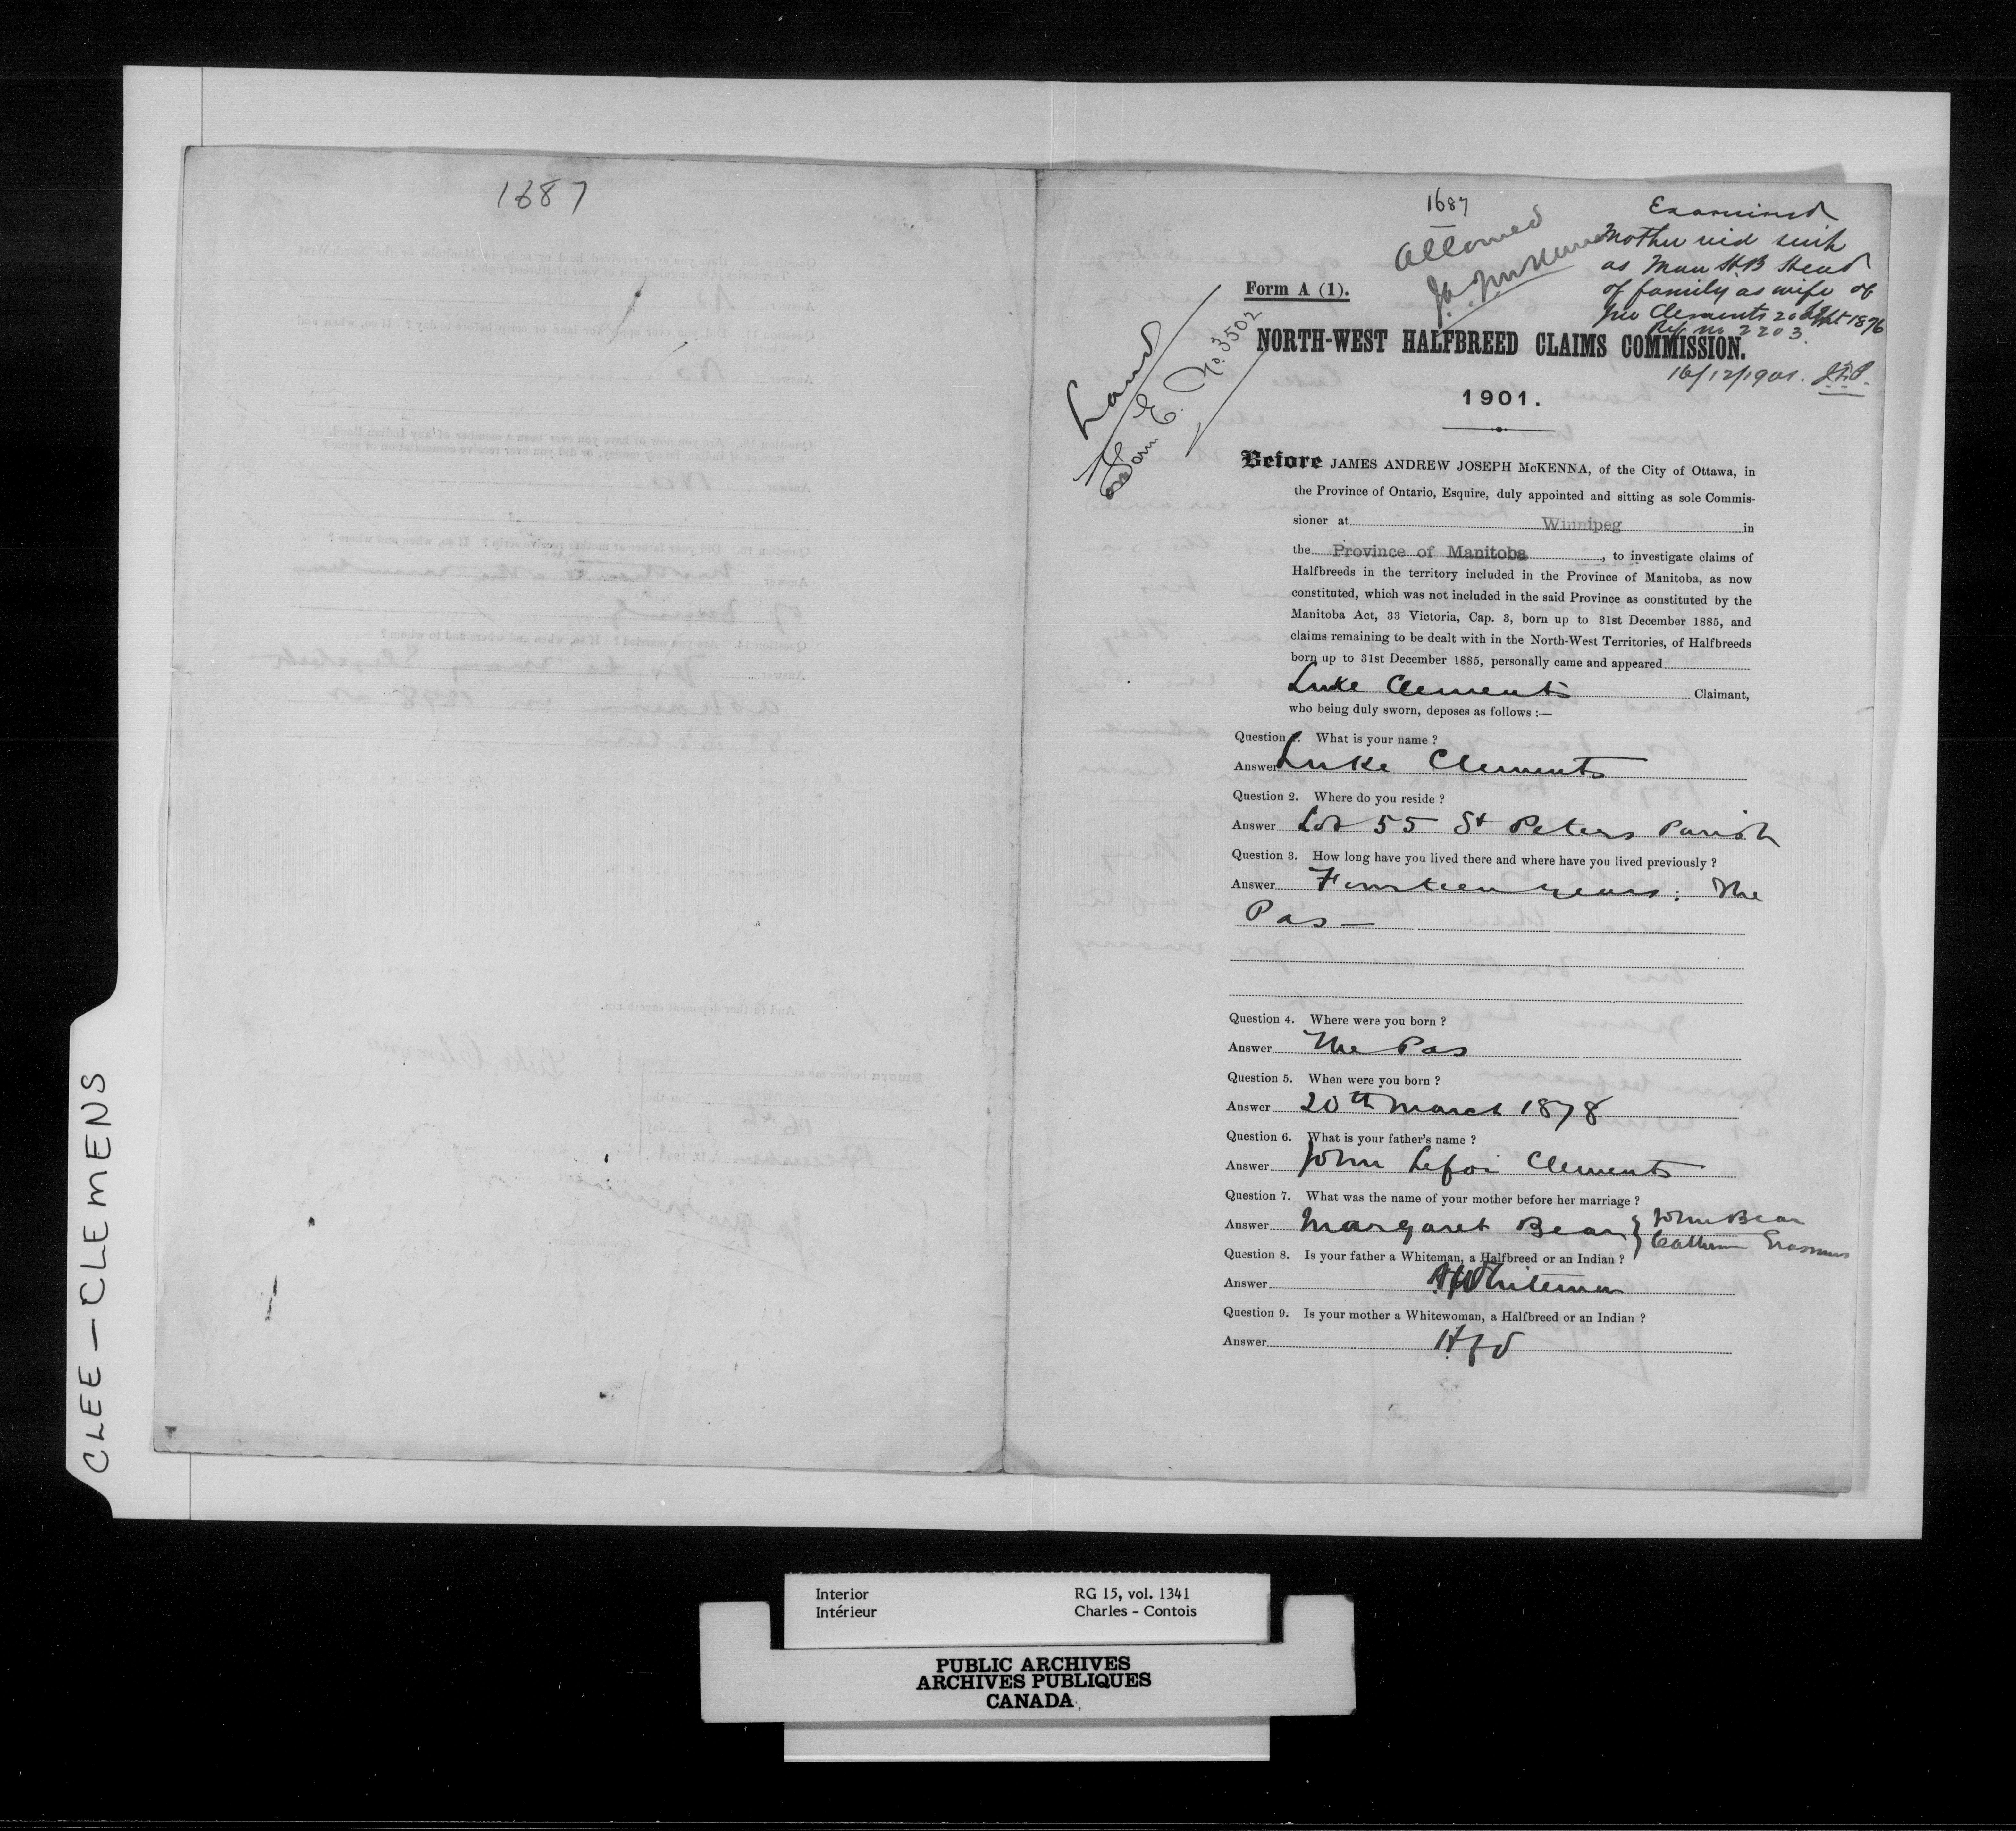 1687
1687
Allowed
Examined
Mother
as Man HB Head
of family as wife of
Geo Clements 20 Sept 1876
Ref no 2203
16/12/1901. J.F.P.
Land
Form E. No. 3502
Form A (1).
NORTH-WEST HALFBREED CLAIMS COMMISSION.
1901.
Before JAMES ANDREW JOSEPH McKENNA, of the City of Ottawa, in
the Province of Ontario, Esquire, duly appointed and sitting as sole Commis-
sioner at Winnipeg in
the Province of Manitoba, to investigate claims of
Halfbreeds in the territory included in the Province of Manitoba, as now
constituted, which was not included in the said Province as constituted by the
Manitoba Act, 33 Victoria, Cap. 3, born up to 31st December 1885, and
claims remaining to be dealt with in the North-West Territories, of Halfbreeds
born up to 31st December 1885, personally came and appeared
Luke Clements Claimant,
who being duly sworn, deposes as follows :—
Question 1. What is your name ?
Answer Luke Clements
Question 2. Where do you reside ?
Answer Lot 55 St Peters Parish
Question 3. How long have you lived there and where have you lived previously ?
Answer Fourteen years. The
Pas —
Question 4. Where were you born ?
Answer The Pas
Question 5. When were you born ?
Answer 20th March 1878
Question 6. What is your father's name ?
Answer John Clements
Question 7. What was the name of your mother before her marriage ?
Answer Margaret Bear } John Bear
Catherine Erasmus
Question 8. Is your father a Whiteman, a Halfbreed or an Indian ?
Answer Whiteman
Question 9. Is your mother a Whitewoman, a Halfbreed or an Indian ?
Answer Hfd
CLEE — CLEMENS
Interior RG 15, vol. 1341
Intérieur Charles - Contois
PUBLIC ARCHIVES
ARCHIVES PUBLIQUES
CANADA